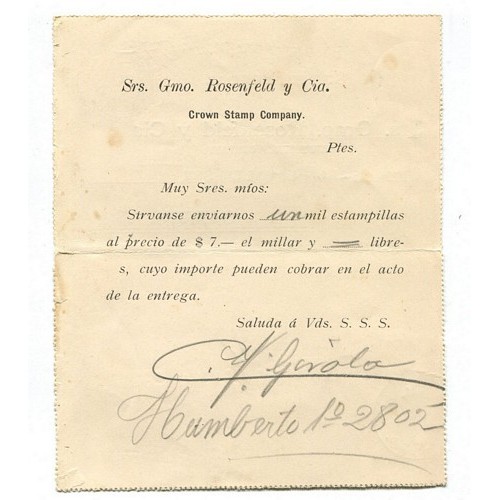 Srs. Gmo. Rosenfeld y Cia.
Crown Stamp Company.
Ptes.
Muy Sres. míos:
Strvanse enviarnos un mil estampillas
al precio de $ 7.— el millar y — libre-
s, cuyo importe pueden cobrar en el acto
de la entrega.
Saluda á Vds. S. S. S.
Humberto 1º 2802